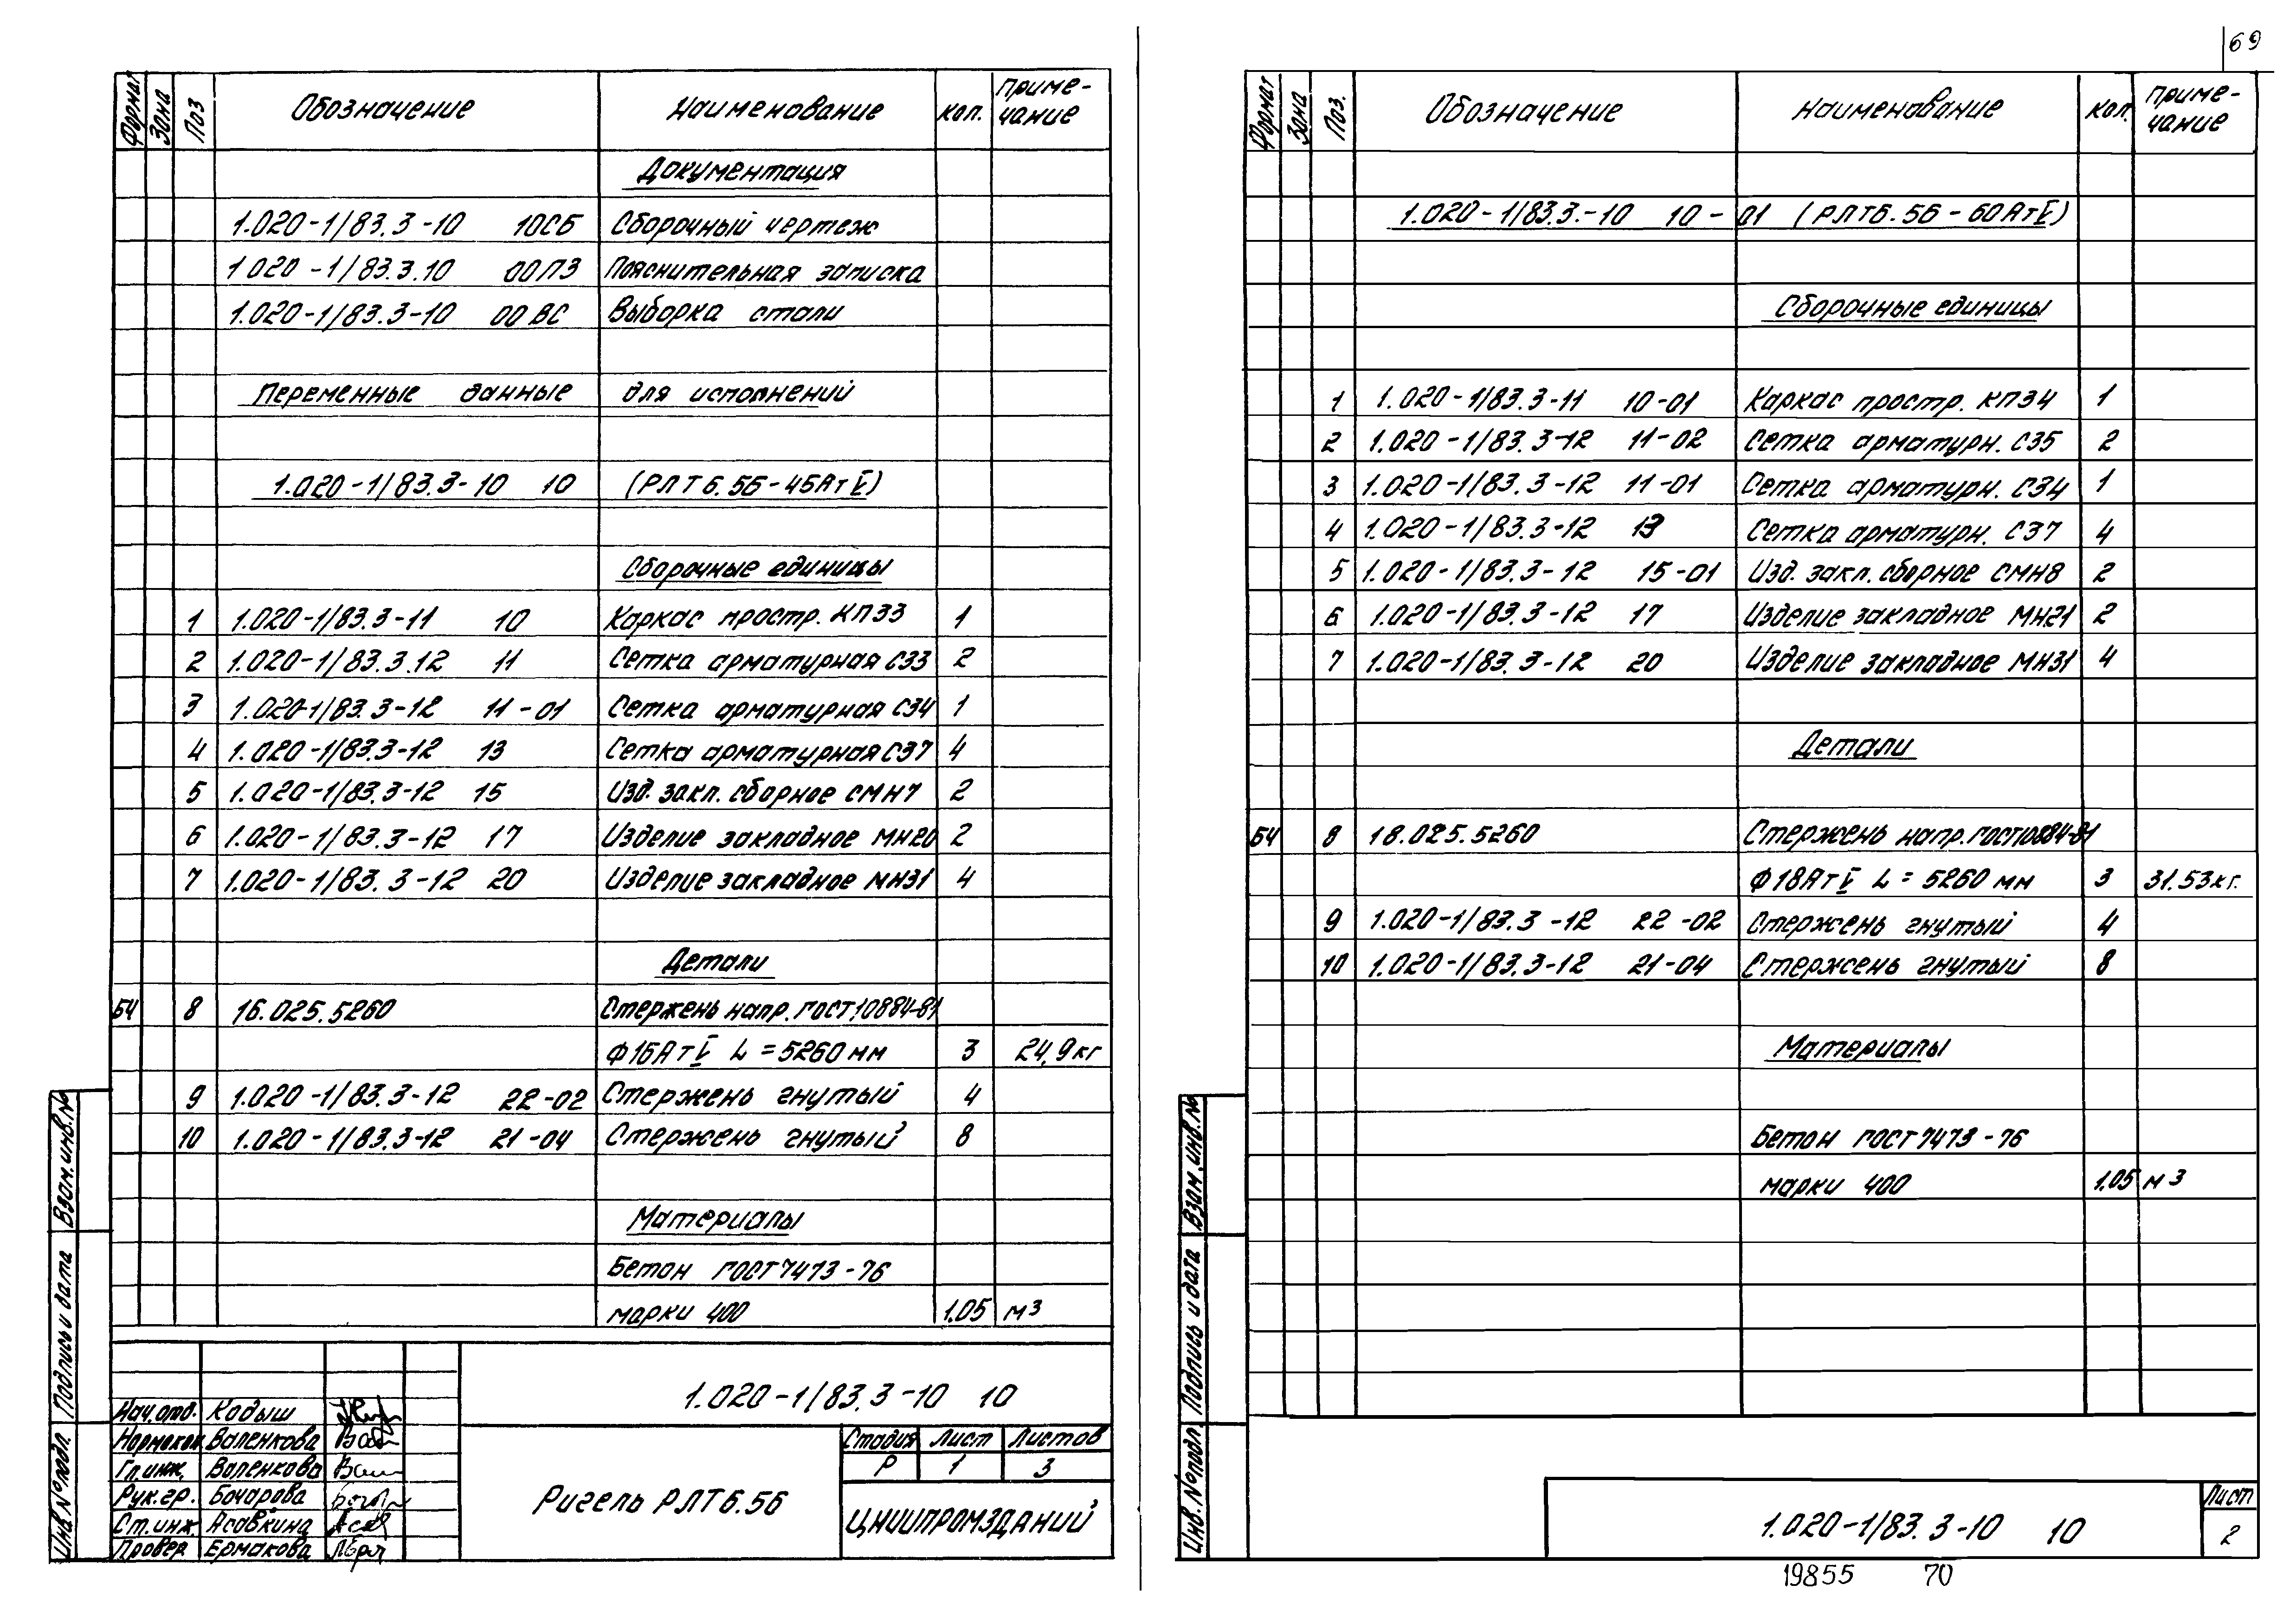 69
Формат Зона Поз Обозначение Наименование Кол. Приме-
чание
Документация
1.020-1/83.3-10 10СБ Сборочный чертеж
1.020-1/83.3.10 00ПЗ Пояснительная записка
1.020-1/83.3-10 00ВС Выборка стали
Переменные данные для исполнений
1.020-1/83.3-10 10 (РЛТ6.56-45АтV)
Сборочные единицы
1 1.020-1/83.3-11 10 Каркас простр. КП33 1
2 1.020-1/83.3.12 11 Сетка арматурная С33 2
3 1.020-1/83.3-12 11-01 Сетка арматурная С34 1
4 1.020-1/83.3-12 13 Сетка арматурная С37 4
5 1.020-1/83.3-12 15 Изд. закл. сборное СМН7 2
6 1.020-1/83.3-12 17 Изделие закладное МН20 2
7 1.020-1/83.3-12 20 Изделие закладное МН31 4
Детали
БЧ 8 16.025.5260 Стержень напр. ГОСТ10884-81
Ф16АтV L=5260мм 3 24,9кг
9 1.020-1/83.3-12 22-02 Стержень гнутый 4
10 1.020-1/83.3-12 21-04 Стержень гнутый 8
Материалы
Бетон ГОСТ7473-76
марки 400 1.05 м3
Взам.инв.№
Подпись и дата
Инв.№подл.
Нач.отд. Кодыш
Нормокон Валенкова
Гл.инж. Валенкова
Рук.гр. Бочарова
Ст.инж Асавкина
Провер Ермакова
1.020-1/83.3-10 10
Ригель РЛТ6.56
Стадия Лист Листов
Р 1 3
ЦНИИПРОМЗДАНИЙ
Формат Зона Поз. Обозначение Наименование Кол. Приме-
чание
1.020-1/83.3.-10 10-01 (РЛТ6.56-60АтV)
Сборочные единицы
1 1.020-1/83.3-11 10-01 Каркас простр. КП34 1
2 1.020-1/83.3-12 11-02 Сетка арматурн. С35 2
3 1.020-1/83.3-12 11-01 Сетка арматурн. С34 1
4 1.020-1/83.3-12 13 Сетка арматурн. С37 4
5 1.020-1/83.3-12 15-01 Изд. закл. сборное СМН8 2
6 1.020-1/83.3-12 17 Изделие закладное МН21 2
7 1.020-1/83.3-12 20 Изделие закладное МН31 4
Детали
БЧ 8 18.025.5260 Стержень напр.ГОСТ10884-81
Ф18АтV L=5260мм 3 31.53кг.
9 1.020-1/83.3-12 22-02 Стержень гнутый 4
10 1.020-1/83.3-12 21-04 Стержень гнутый 8
Материалы
Бетон ГОСТ7473-76
марки 400 1.05 м3
Взам.инв.№
Подпись и дата
Инв.№подл.
1.020-1/83.3-10 10
Лист
2
19855 70